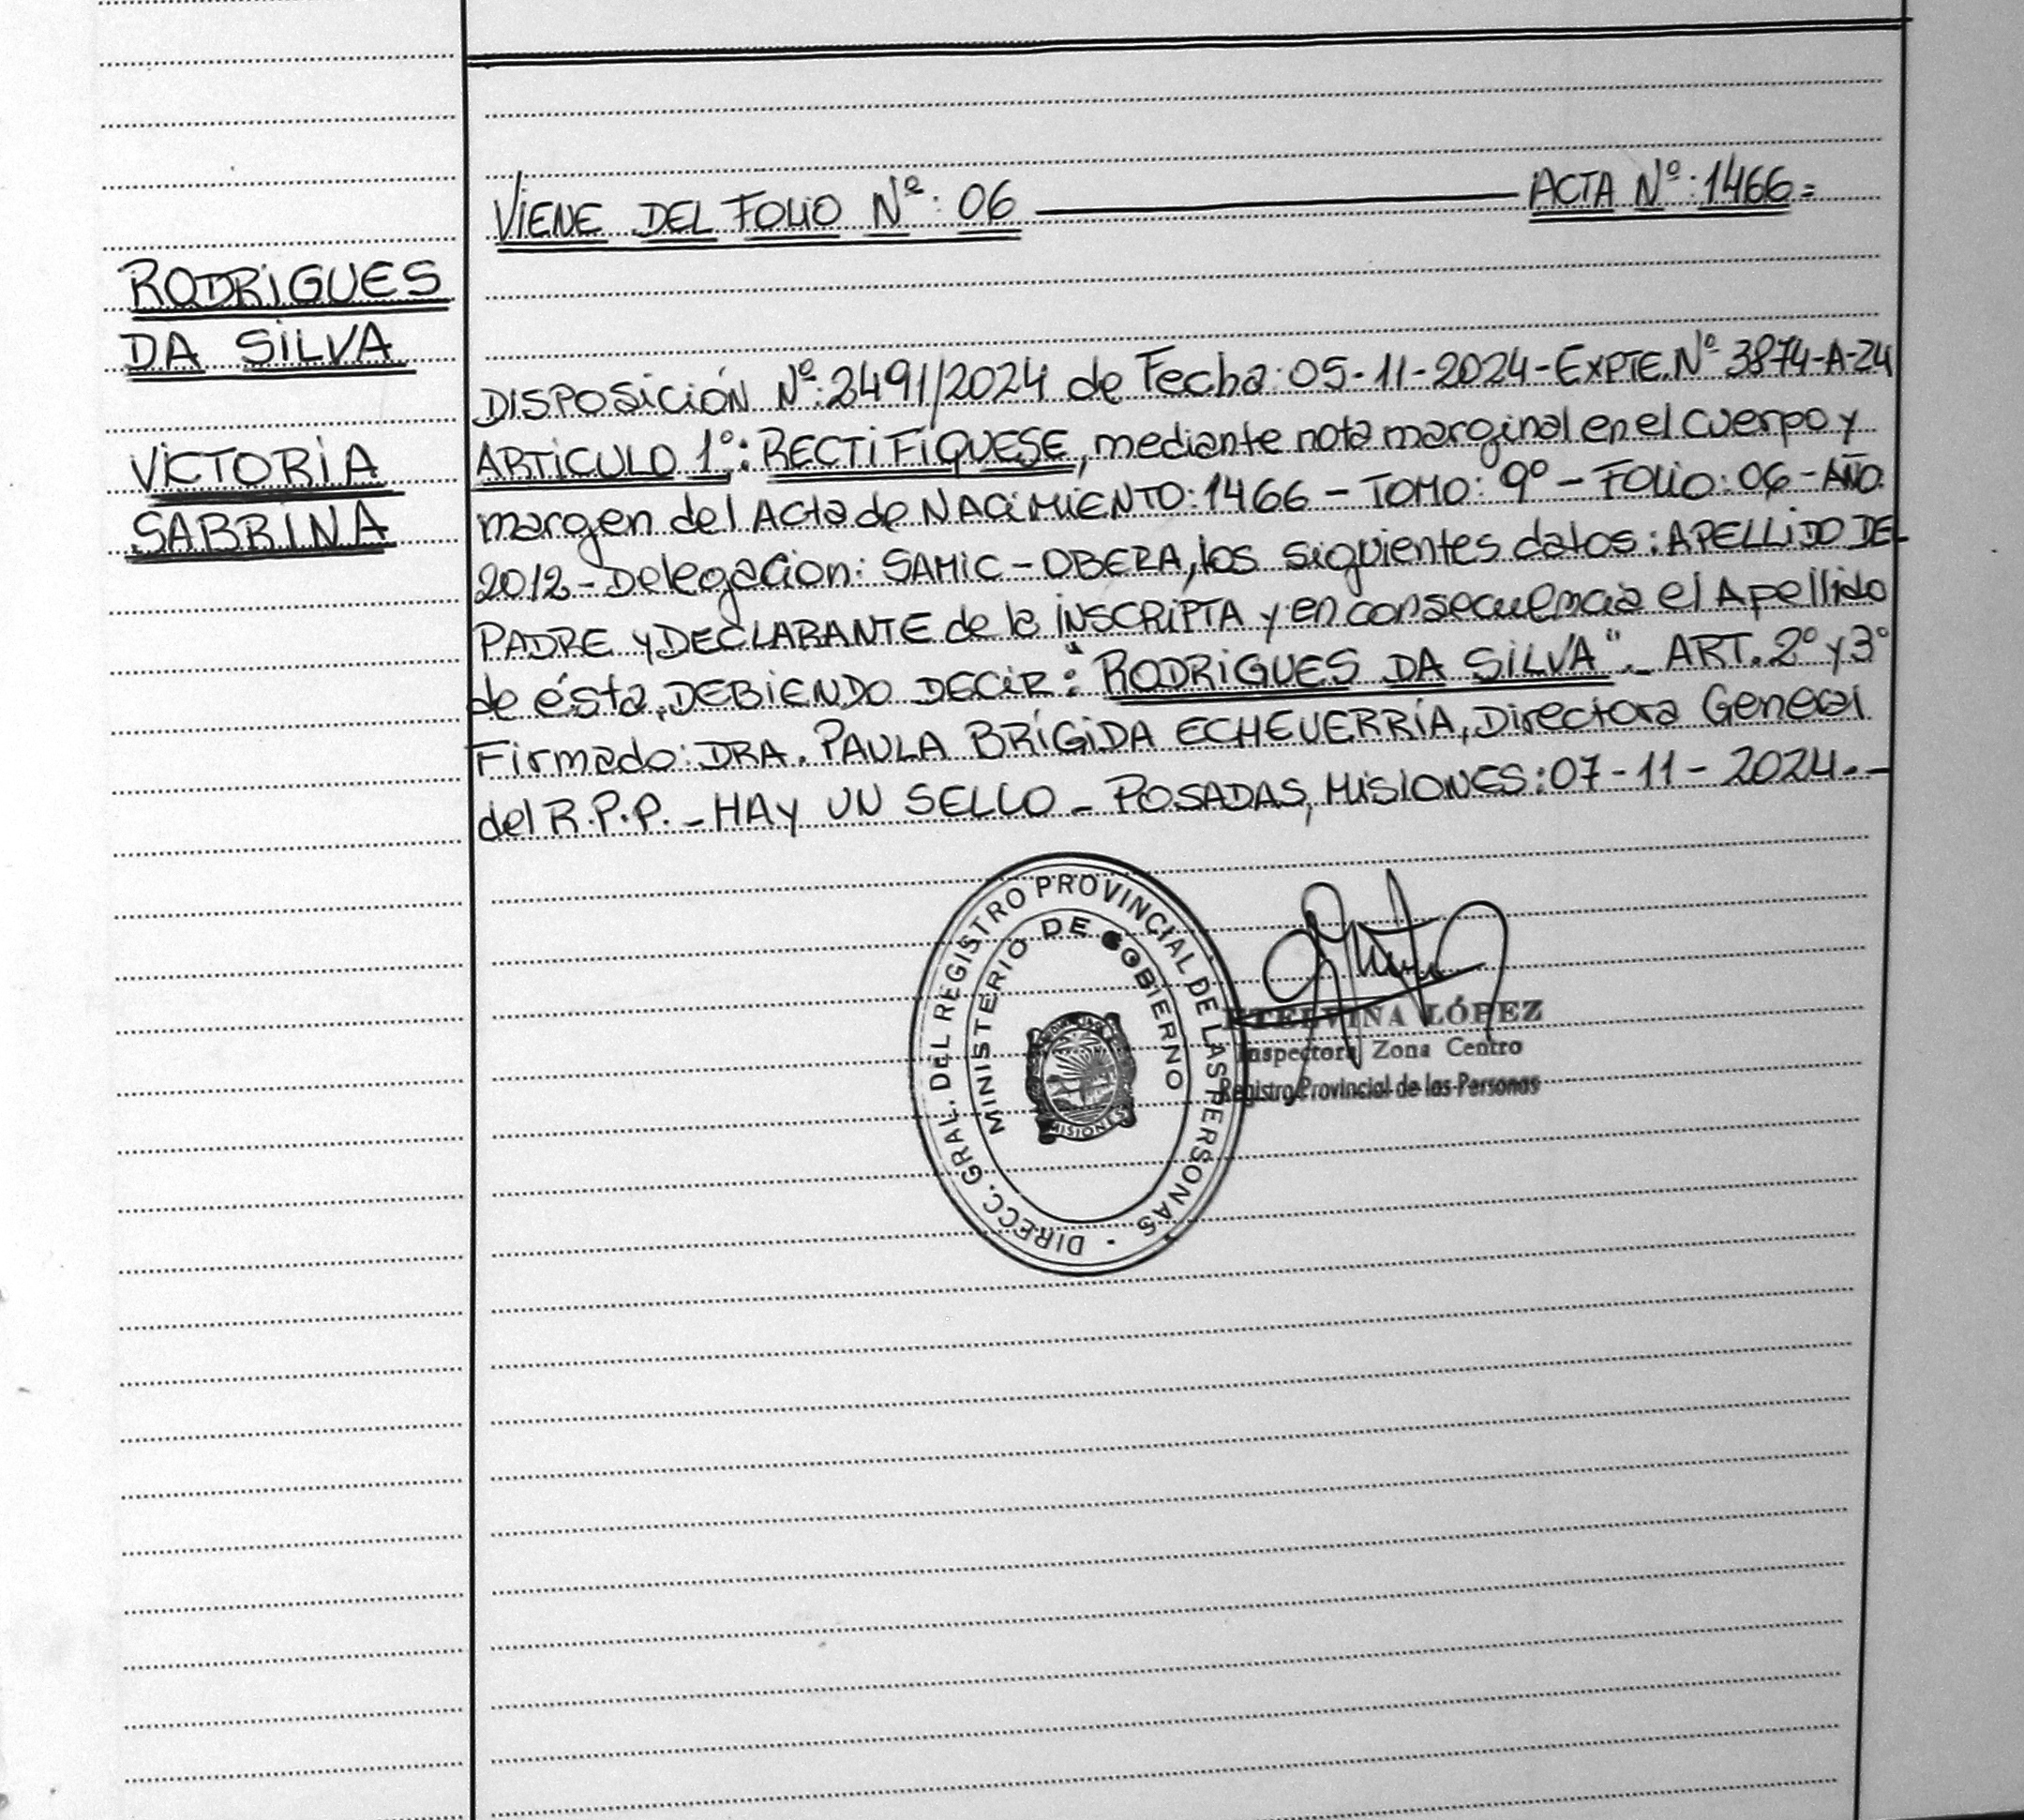 VIENE DEL FOLIO Nº: 06 ACTA Nº: 1466=
RODRIGUES
DA SILVA
VICTORIA
SABRINA
DISPOSICIÓN Nº: 2491/2024 de Fecha: 05-11-2024-EXPTE.Nº 3874-A-24
ARTICULO 1º: RECTIFIQUESE, mediante nota marginal en el cuerpo y
margen del Acta de NACIMIENTO: 1466 - TOMO: 9º - FOLIO: 06 - AÑO:
2012 - Delegacion: SAMIC - OBERA, los siguientes datos: APELLIDO DEL
PADRE y DECLARANTE de la INSCRIPTA y en consecuencia el Apellido
de ésta, DEBIENDO DECIR: "RODRIGUES DA SILVA"._ ART. 2º y 3º
Firmado: DRA. PAULA BRÍGIDA ECHEVERRÍA, Directora General
del R.P.P. - HAY UN SELLO - POSADAS, MISIONES: 07-11-2024.-
DIRECC. GRAL. DEL REGISTRO PROVINCIAL DE LAS PERSONAS
MINISTERIO DE GOBIERNO
MISIONES
ETELVINA LÓPEZ
Inspectora Zona Centro
Registro Provincial de las Personas